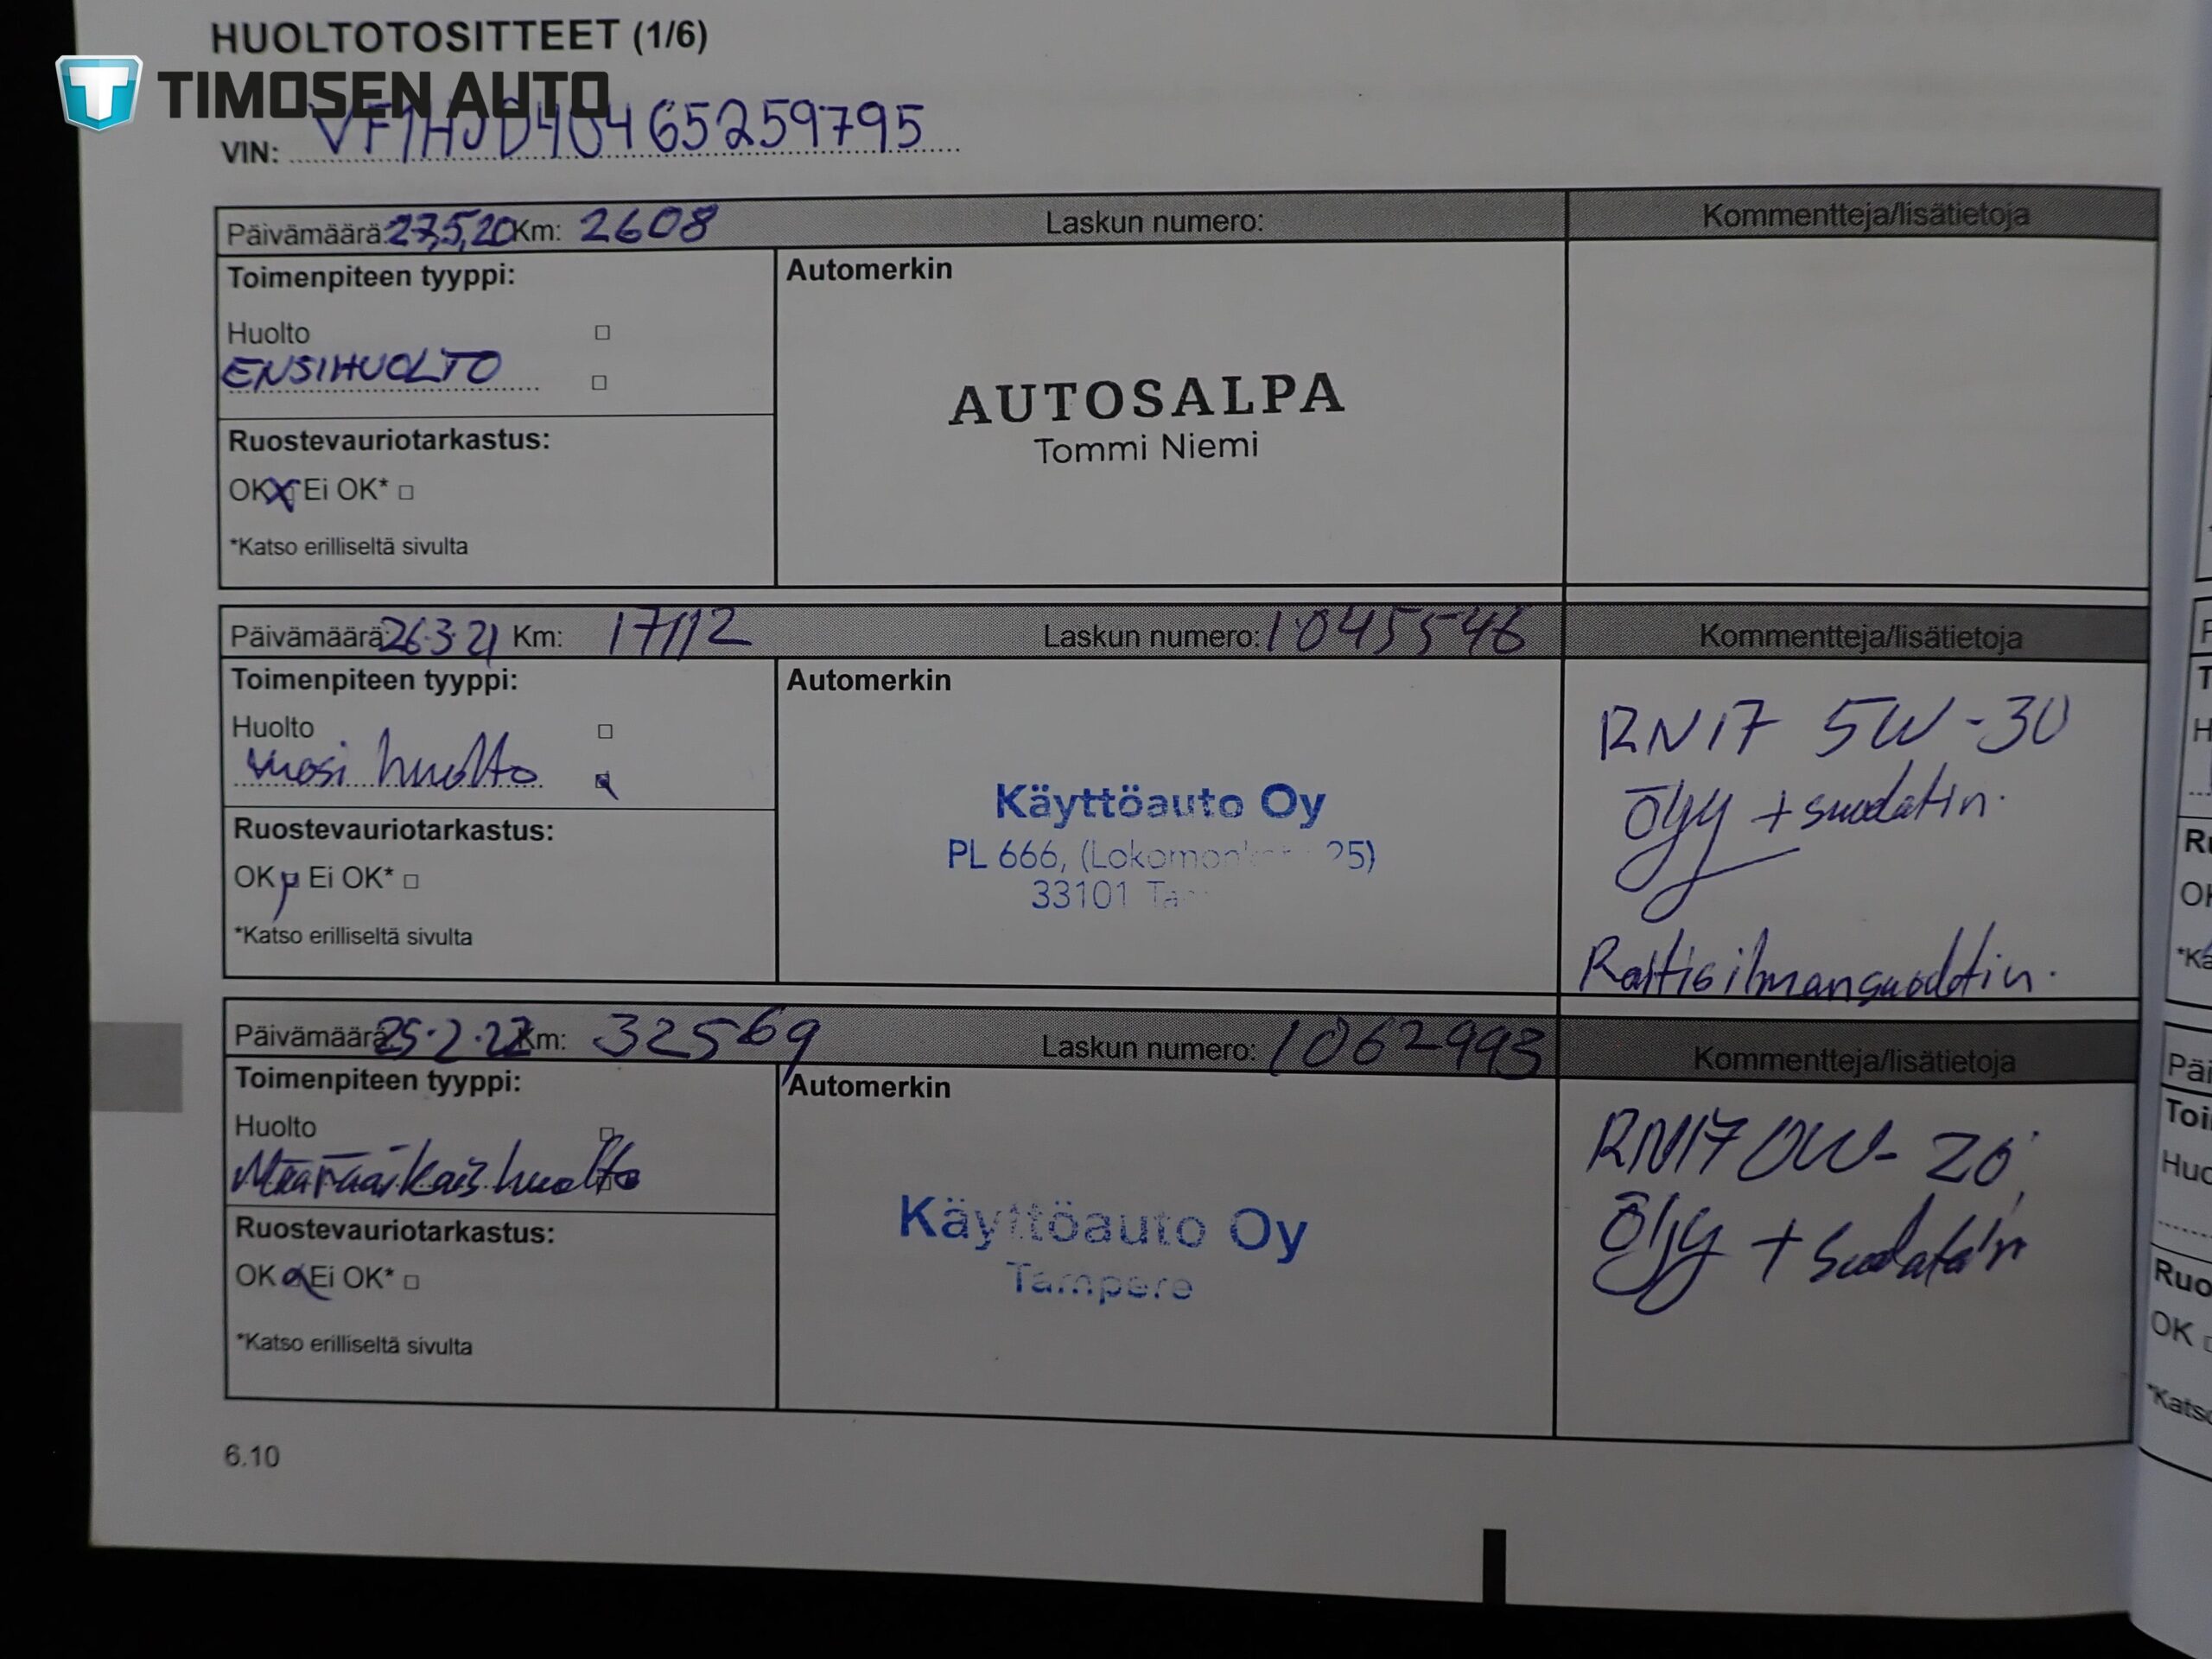 HUOLTOTOSITTEET (1/6)
TIMOSEN AUTO
VIN: VF1HJD40465259795
Päivämäärä: 27,5,20 Km: 2608 Laskun numero: Kommentteja/lisätietoja
Toimenpiteen tyyppi:
Automerkin
Huolto
ENSIHUOLTO
AUTOSALPA
Tommi Niemi
Ruostevauriotarkastus:
OK Ei OK*
*Katso erilliseltä sivulta
Päivämäärä: 26.3.21 Km: 17112 Laskun numero: 1045546 Kommentteja/lisätietoja
Toimenpiteen tyyppi:
Automerkin
Huolto
Vuosi huolto
Käyttöauto Oy
PL 666, 25)
33101
RN17 5W-30
Öljy + suodatin.
Raitisilmansuodatin.
Ruostevauriotarkastus:
OK Ei OK*
*Katso erilliseltä sivulta
Päivämäärä: 25.2.22 Km: 32569 Laskun numero: 1062993 Kommentteja/lisätietoja
Toimenpiteen tyyppi:
Automerkin
Huolto
Määräaikaishuolto
Käyttöauto Oy
Tampere
RN17 0W-20
Öljy + suodatin
Ruostevauriotarkastus:
OK Ei OK*
*Katso erilliseltä sivulta
6.10